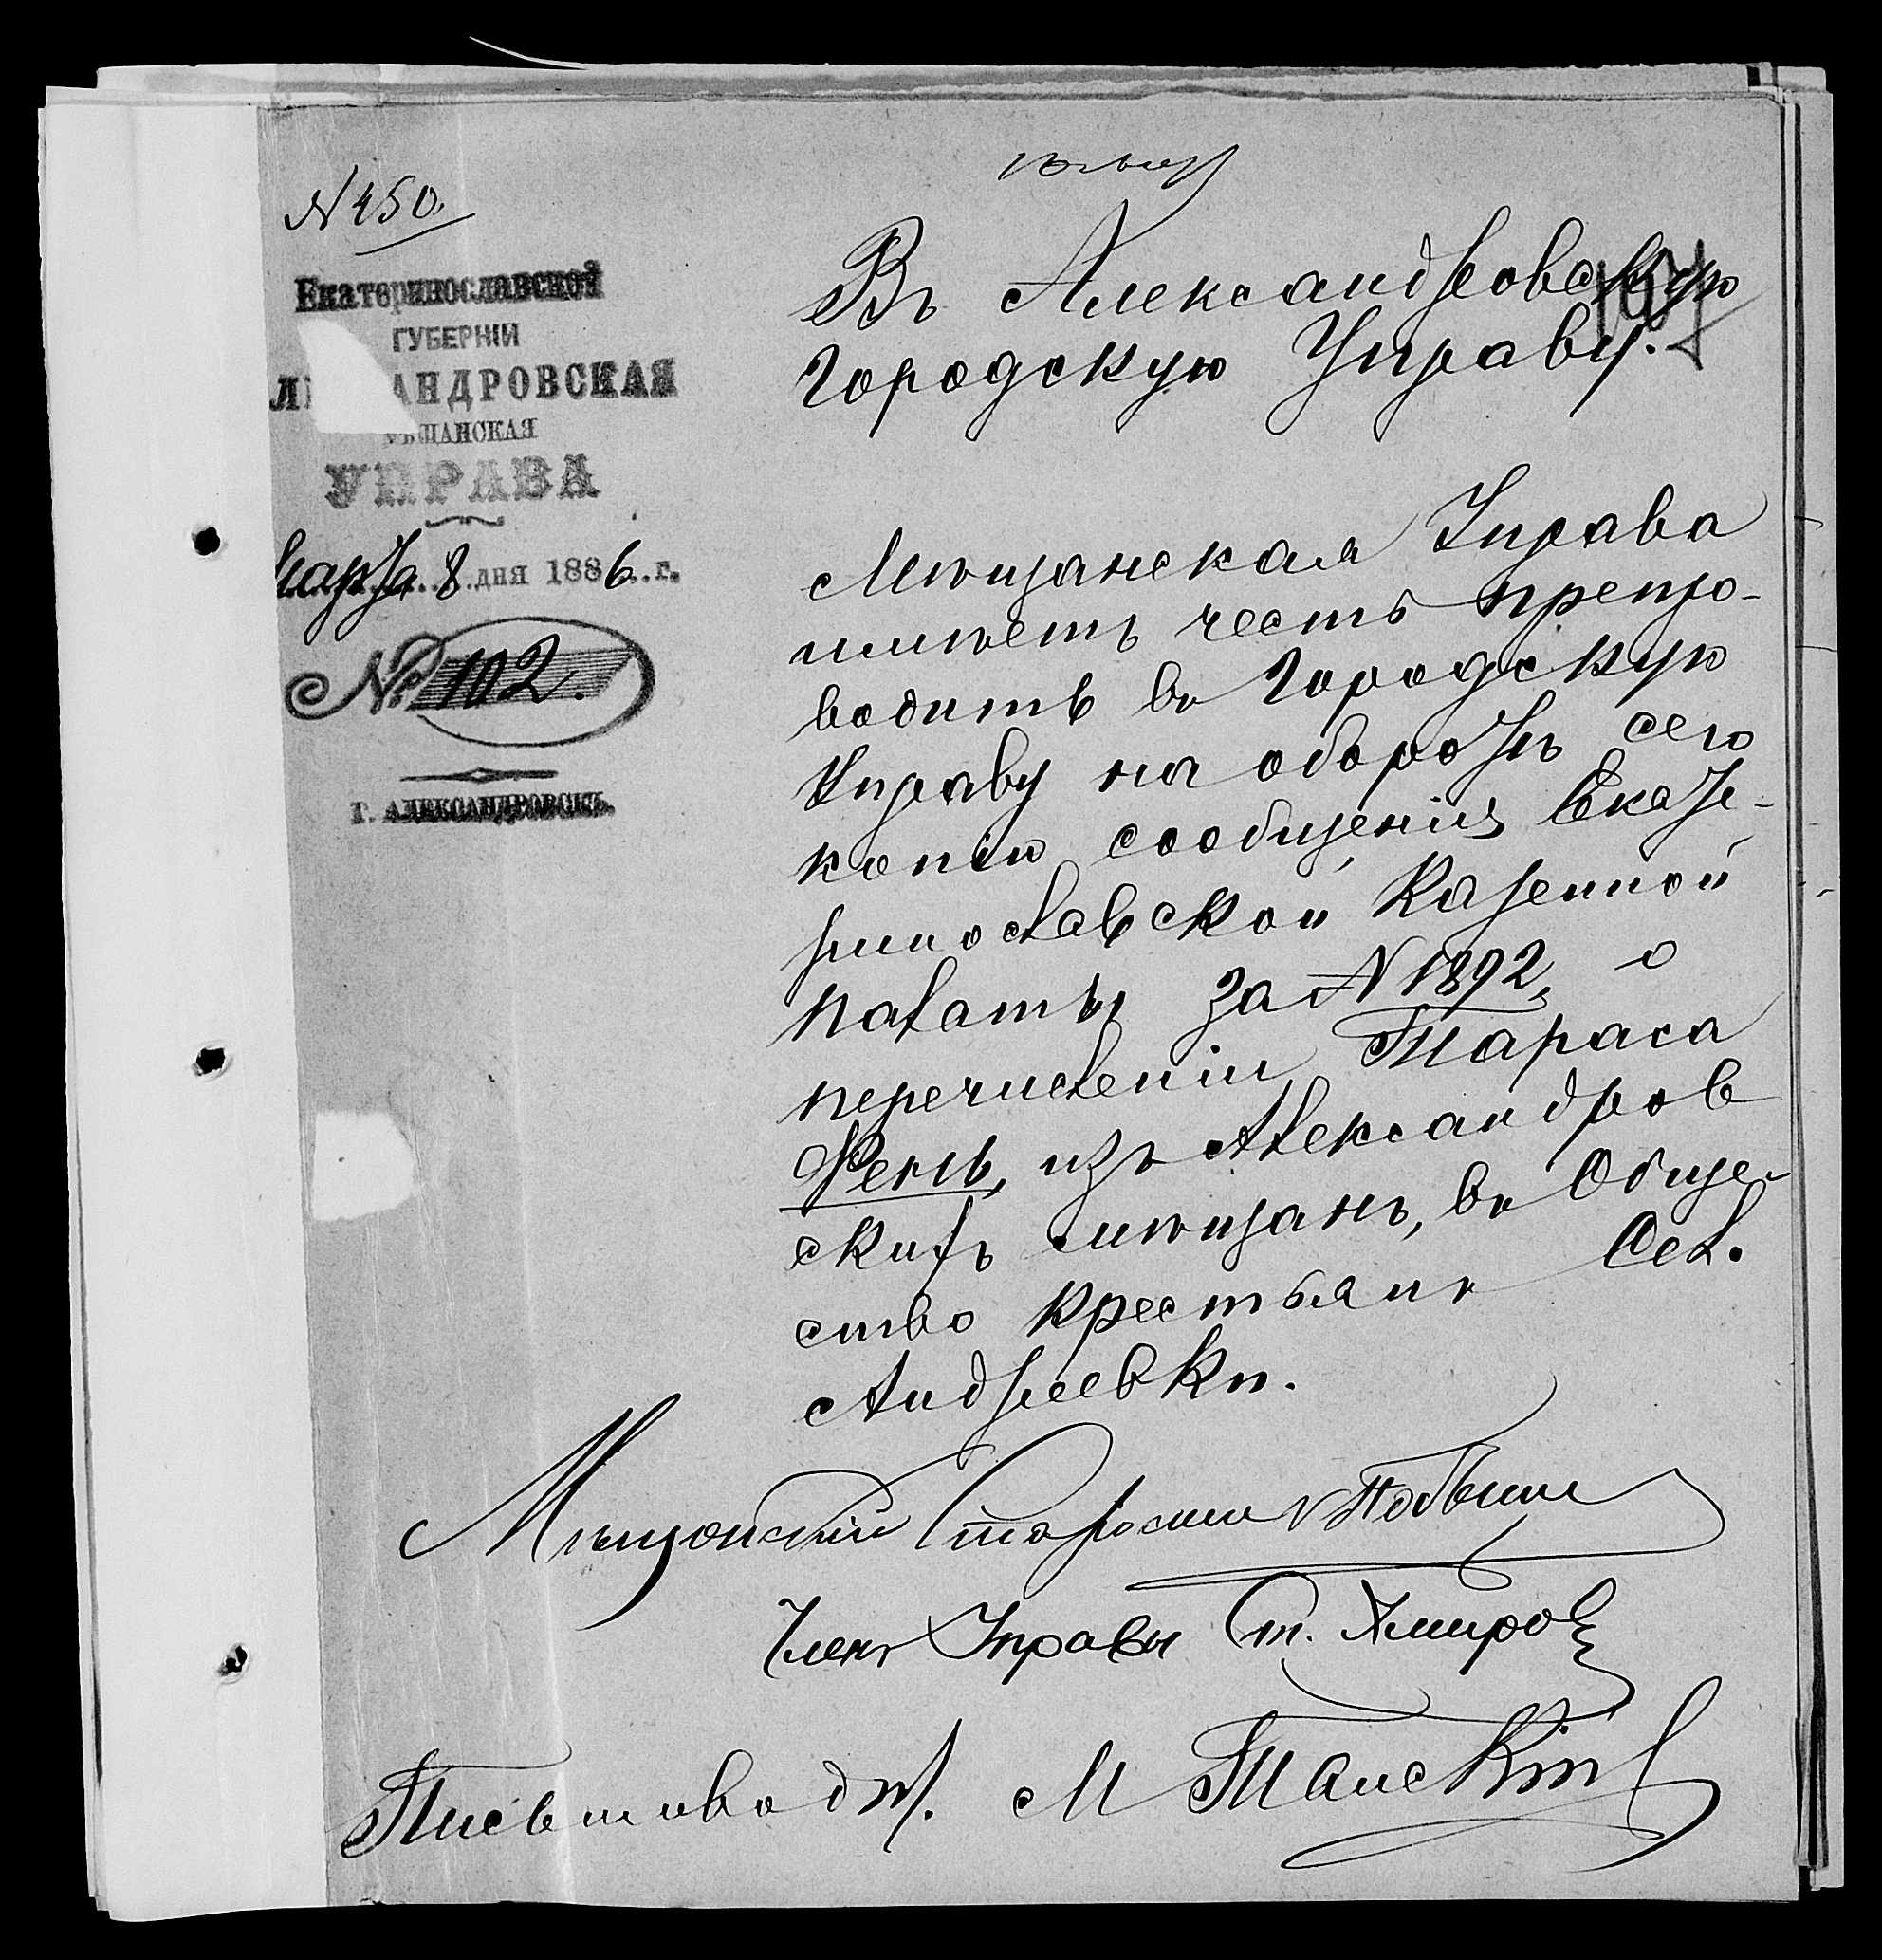 № 450.
Екатеринославской
ГУБЕРНІИ
АНДРОВСКАЯ
ѢЩАНСКАЯ
УПРАВА
Марта 8 дня 1886 г.
№ 102.
Г. АЛЕКСАНДРОВСКЪ.
Въ Александровскую
Городскую Управу.
Мѣщанская Управа
имѣетъ честь препро-
водить въ Городскую
Управу на оборотѣ сего
копію сообщенія Екате-
ринославской Казенной
палаты за № 1892, о
перечисленіи Тараса
Фень, изъ Александров
скихъ мѣщанъ, въ Обще-
ство крестьянъ Сел.
Андреевки.
Мѣщанскій Староста
Членъ Управы Ст.
Письмоводит. М